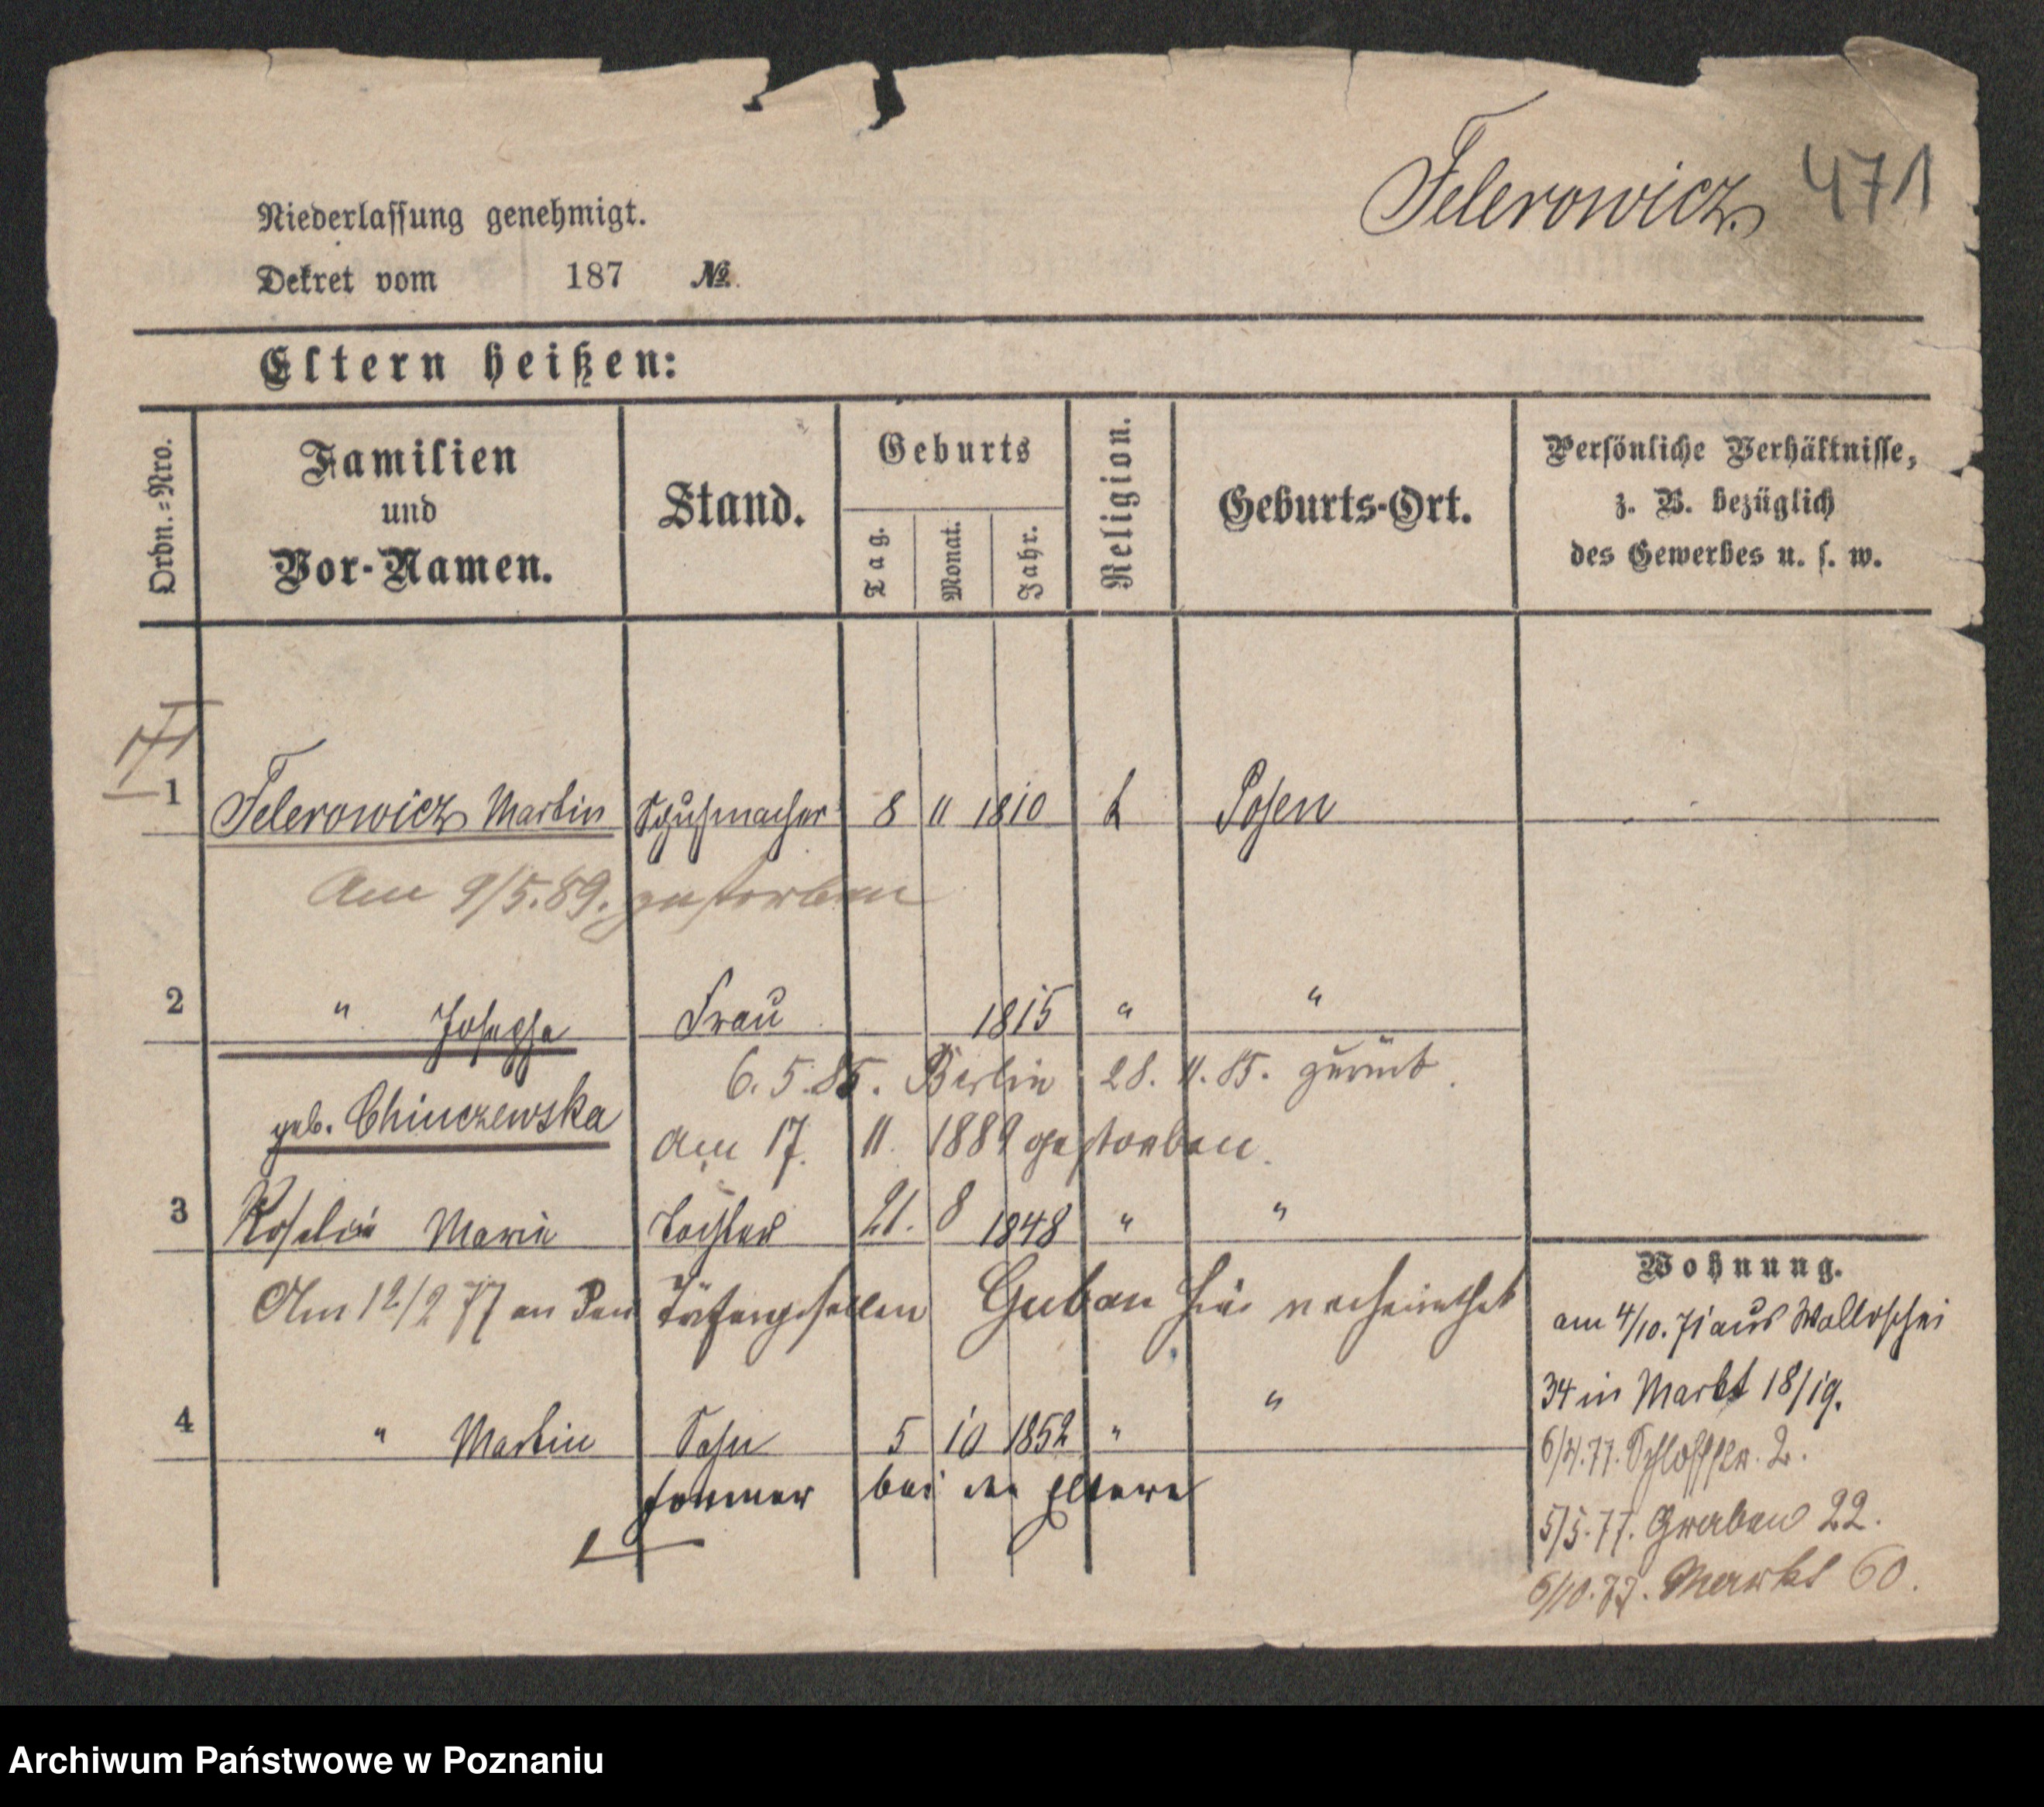 Felerowicz. 471
Niederlassung genehmigt.
Dekret vom 187 No.
Eltern heißen:
Ordn.-Nro.
Familien
und
Vor-Namen.
Stand.
Geburts
Tag.
Monat.
Jahr.
Religion.
Geburts-Ort.
Persönliche Verhältnisse,
z. B. bezüglich
des Gewerbes u. s. w.
1 Felerowicz Martin Schuhmacher 8 11 1810 k Posen
Am 9/5.89. gestorben
2 " Josepha Frau 1815 " "
6. 5. 85. Berlin 28. 11. 85. zurück.
geb. Chinczewska
am 17. 11. 1889 gestorben.
3 Rosalie Marie Tochter 21. 8 1848 " "
Am 12/2 77 an den Guban hier verheirathet
4 " Martin Sohn 5 10 1852 " "
bei den Eltern
Wohnung.
am 4/10. 71 aus Wallischei
34 in Markt 18/19.
6/4.77. Schloßstr. 2.
5/5.77. Graben 22.
6/10.77. Markt 60.
Archiwum Państwowe w Poznaniu